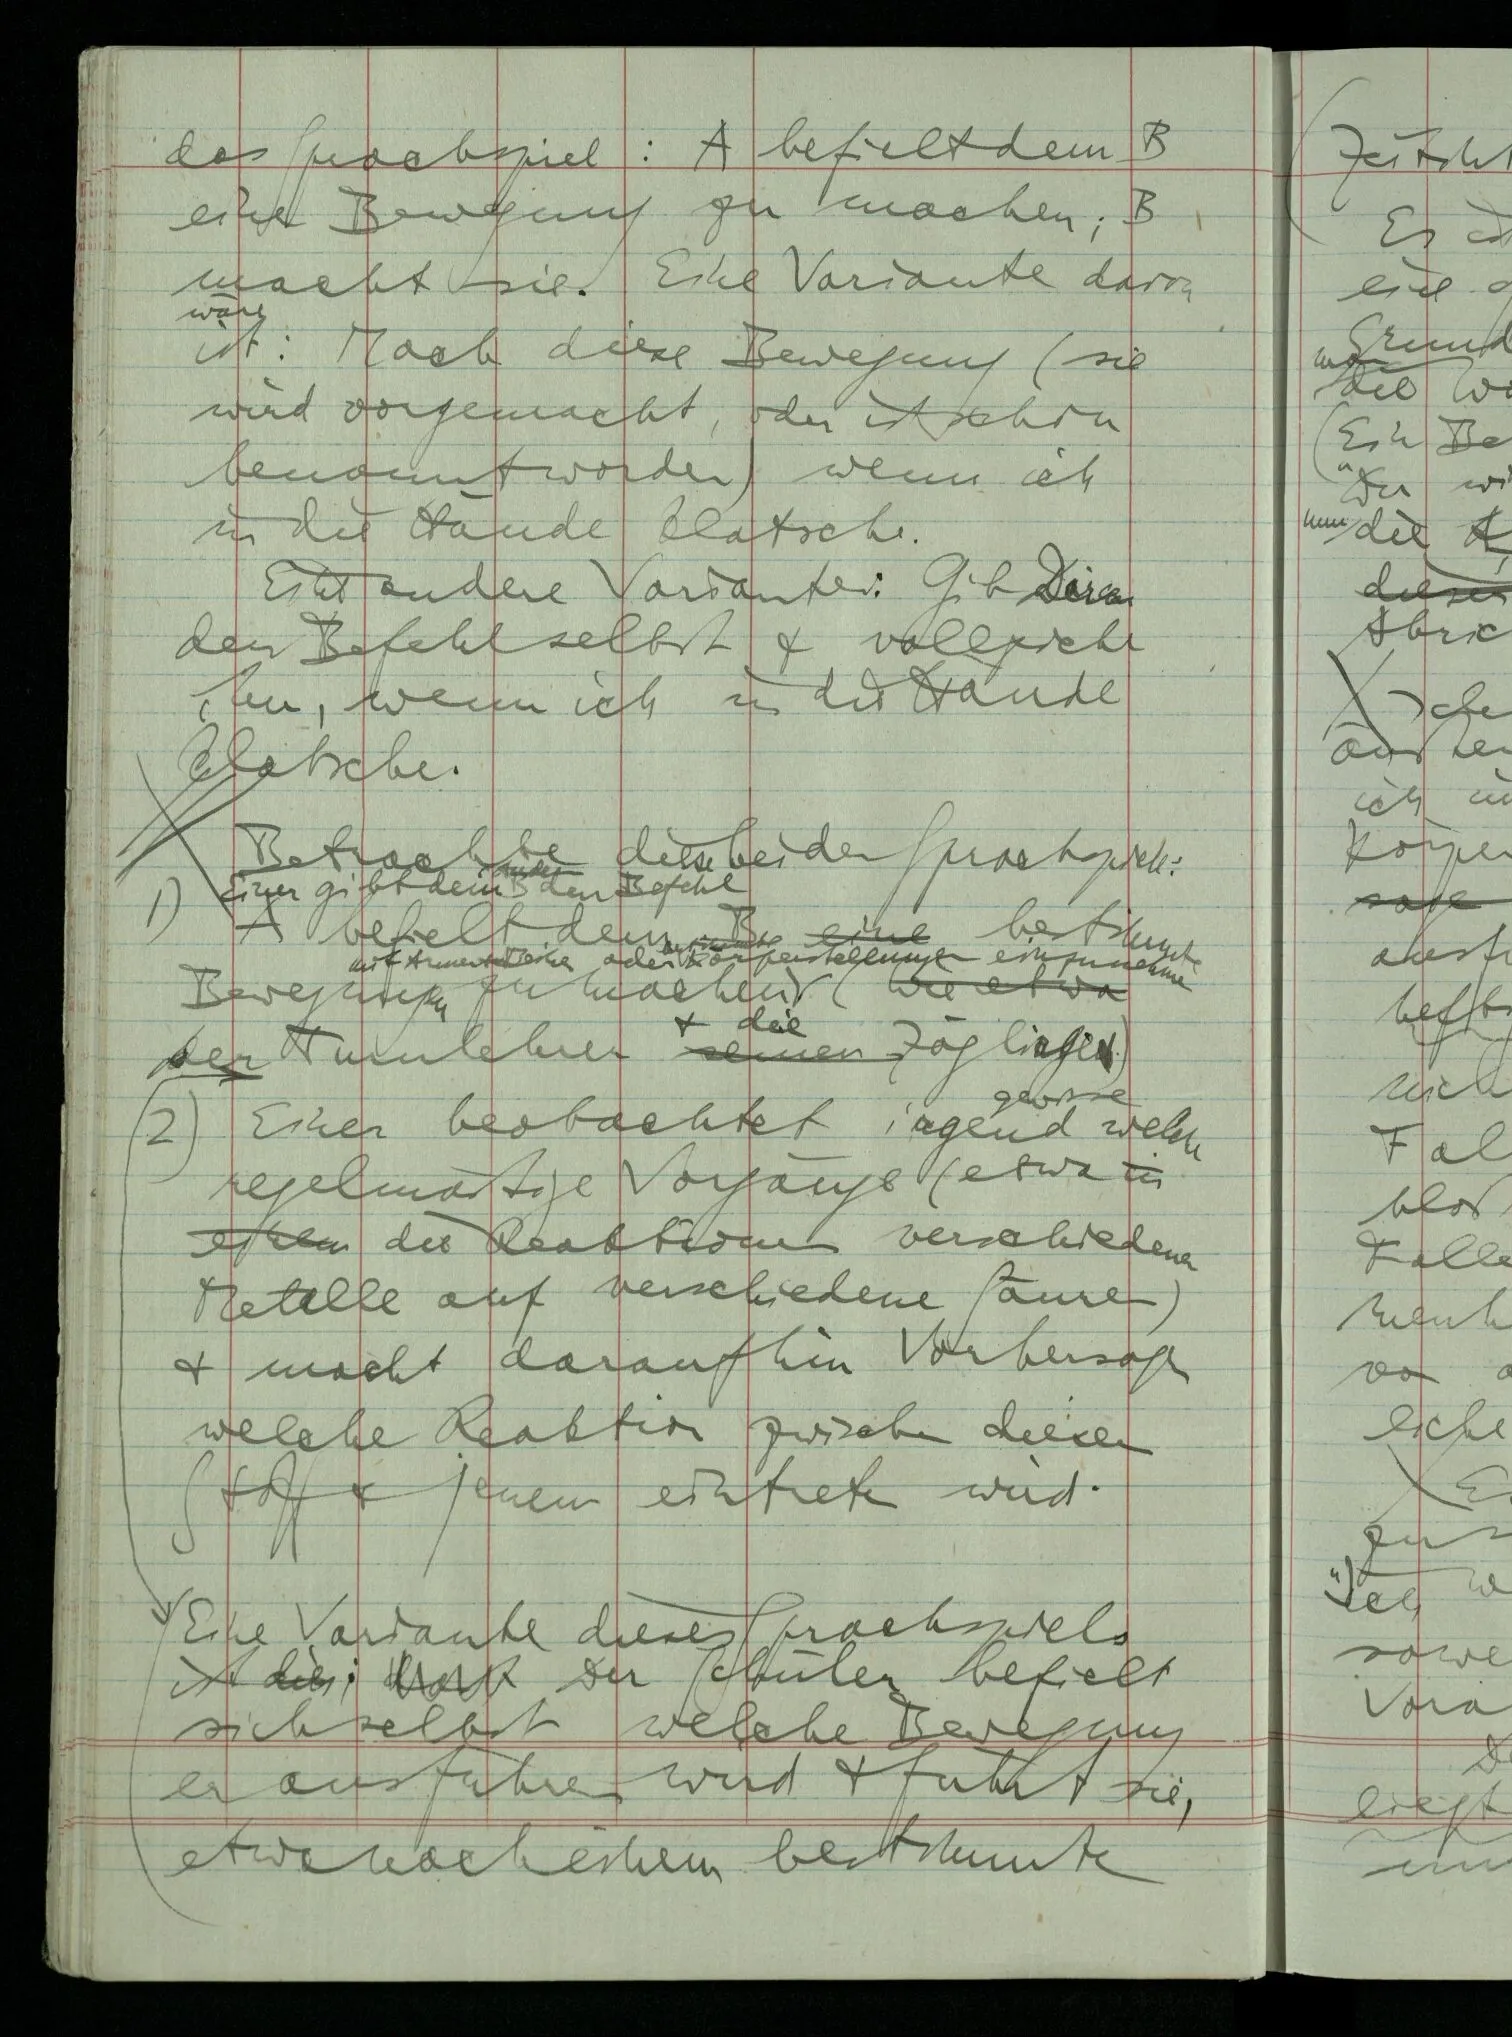 das Sprachspiel: A befielt dem B
eine Bewegung zu machen; B
macht sie. Eine Variante davon
wäre
ist: Mach diese Bewegung (sie
wird vorgemacht, oder ist schon
benannt worden) wenn ich
in die Hände klatsche.
Eine andere Variante: Gib Dir
den Befehl selbst & vollziehe
ihn, wenn ich in die Hände
klatsche.
Betrachte diese beiden Sprachspiele:
Einer gibt dem Andern B den Befehl
1) A befielt dem B eine bestimmte
mit Armen & Beine oder Körperstellungen einzunehmen
Bewegungen zu machen (wie etwa
& die
der Turnlehrer seinen Zöglinge)
gewisse
2) Einer beobachtet irgend welche
regelmäßige Vorgänge (etwa in
einem die Reaktionen verschiedener
Metalle auf verschiedene Säuren)
& macht daraufhin Vorhersagen
welche Reaktion zwischen diesem
Stoff & jenem eintreten wird.
Eine Variante dieses Sprachspiels
ist dies: Der Schüler befielt
sich selbst welche Bewegung
er ausführen wird & führt sie,
etwa nach einem bestimmten
(
Es
eine
Grund
die
(Ein Be
Du wi
nun
die
dieser
Abric
ich
Körper
sage
nich
Fal
Falle
von
liche
Ich
Vora
liegt